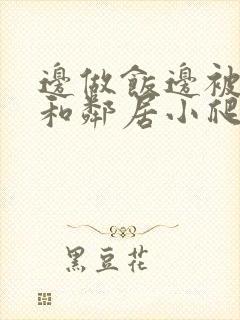 邊做飯邊被
和鄰居小爬
黑豆花